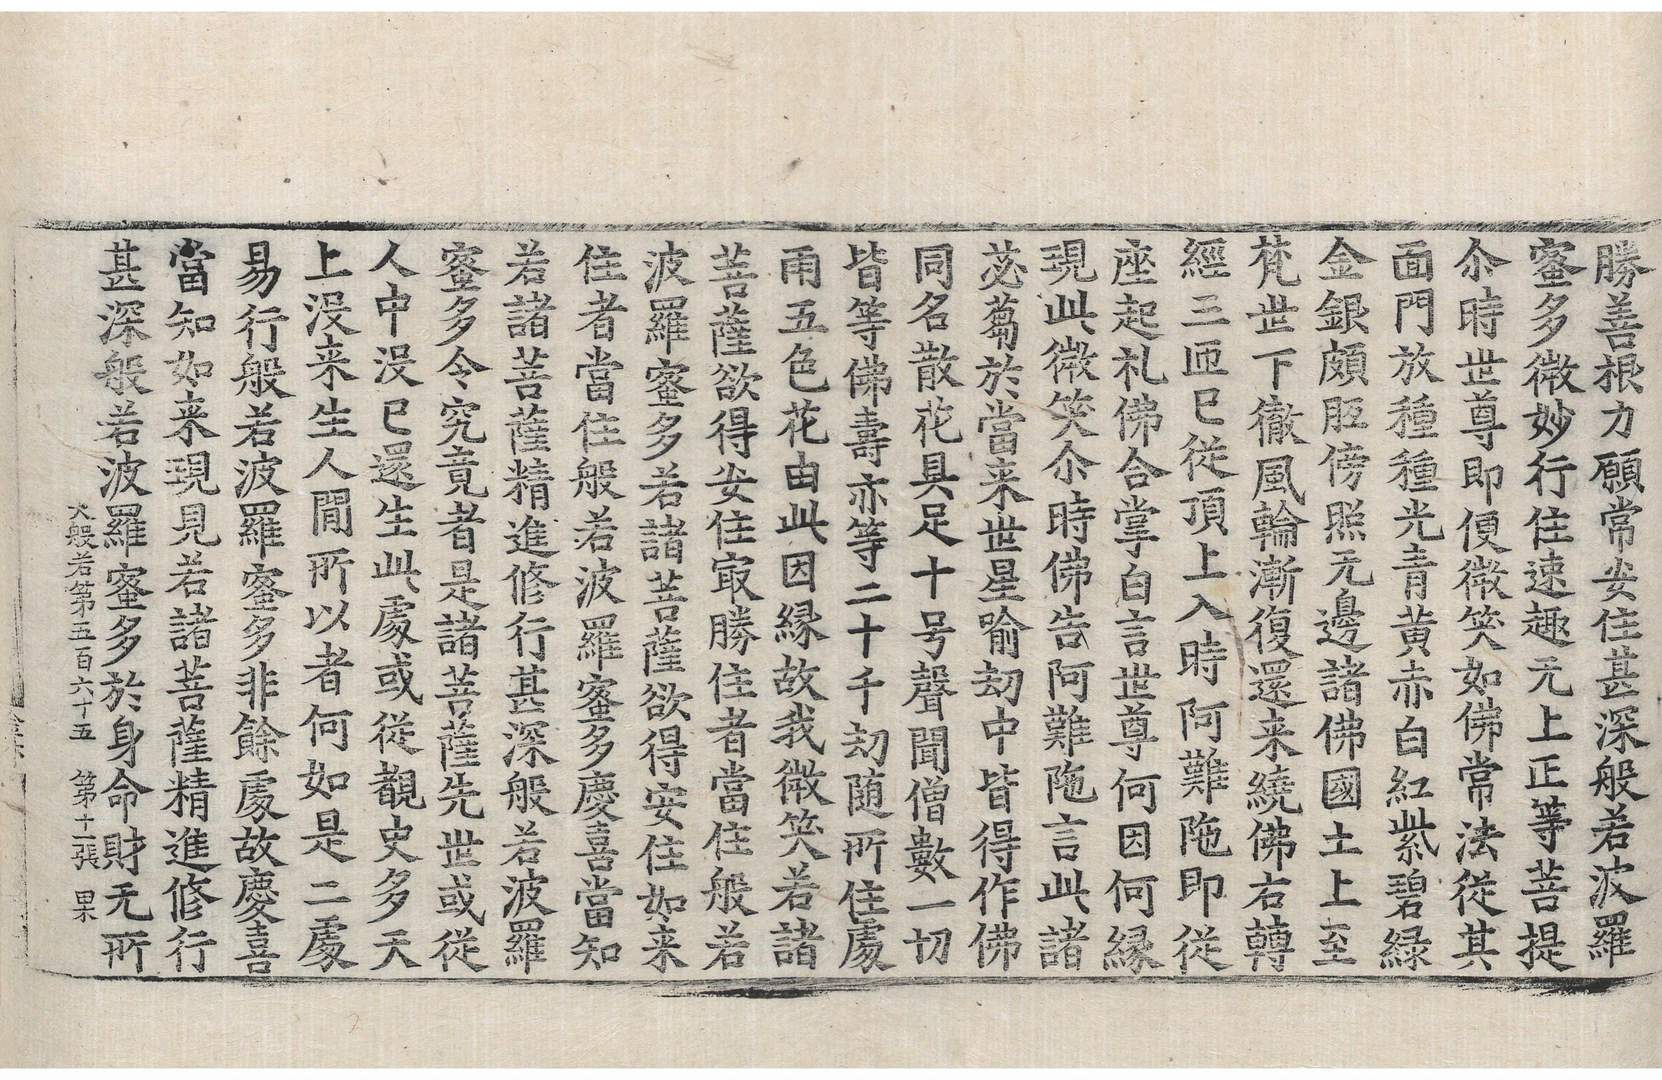 勝善根力願常安住甚深般若波羅
蜜多微妙行住速趣无上正等菩提
尒時世尊即便微笑如佛常法從其
面門放種種光青黃赤白紅紫碧綠
金銀頗胝傍照无邊諸佛國土上至
梵世下徹風輪漸復還来繞佛右轉
經三匝已從頂上入時阿難陁即從
座起礼佛合掌白言世尊何因何緣
現此微笑尒時佛告阿難陁言此諸
苾蒭於當来世星喻劫中皆得作佛
同名散花具足十号聲聞僧數一切
皆等佛壽亦等二十千劫随所住處
雨五色花由此因緣故我微笑若諸
菩薩欲得安住冣勝住者當住般若
波羅蜜多若諸菩薩欲得安住如来
住者當住般若波羅蜜多慶喜當知
若諸菩薩精進修行甚深般若波羅
蜜多令究竟者是諸菩薩先世或從
人中沒已還生此處或從覩史多天
上沒来生人間所以者何如是二處
易行般若波羅蜜多非餘處故慶喜
當知如来現見若諸菩薩精進修行
甚深般若波羅蜜多於身命財无所
大般若第五百六十五 第十二張 果